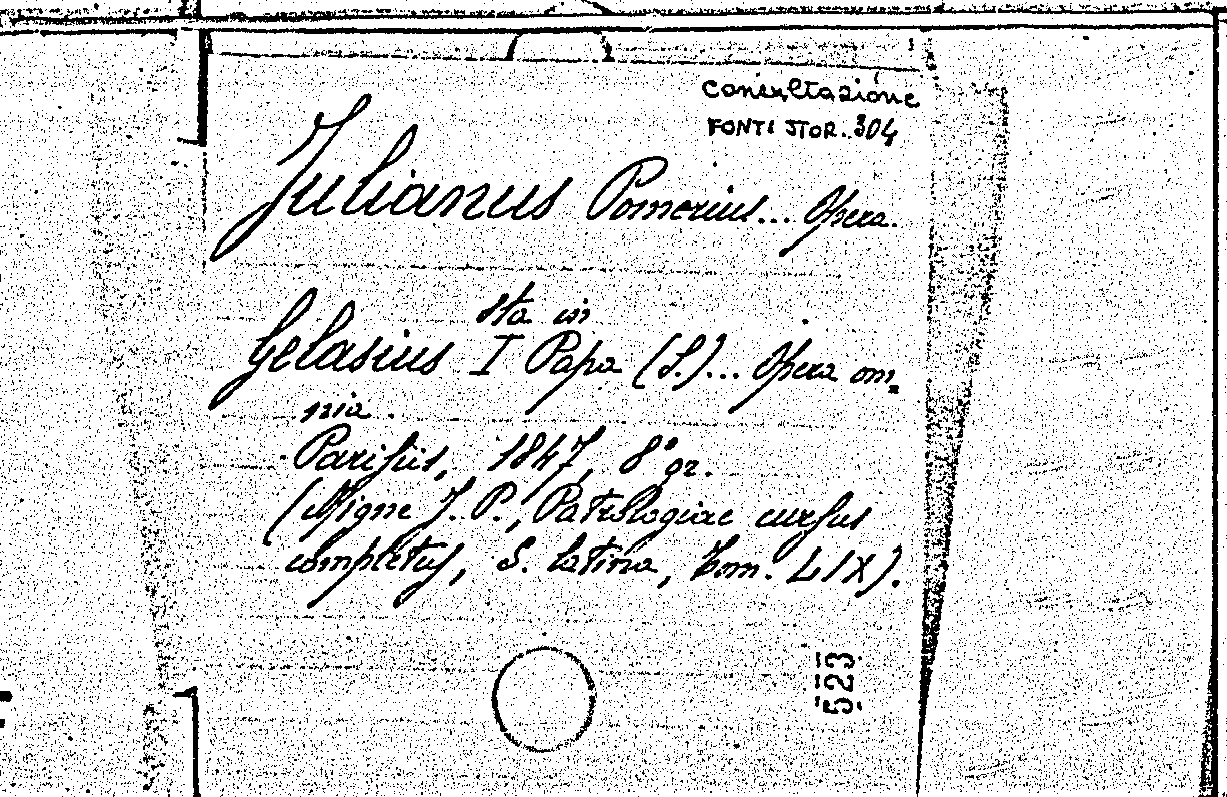 Consultazione
FONTI STOR. 304
Julianus Pomerius... Opera.
sta in
Gelasius I Papa (S.)... Opera om=
nia.
Parisiis, 1847, 8° gr.
(Migne J. P., Patrologiae cursus
completus, S. latina, Tom. LIX).
523